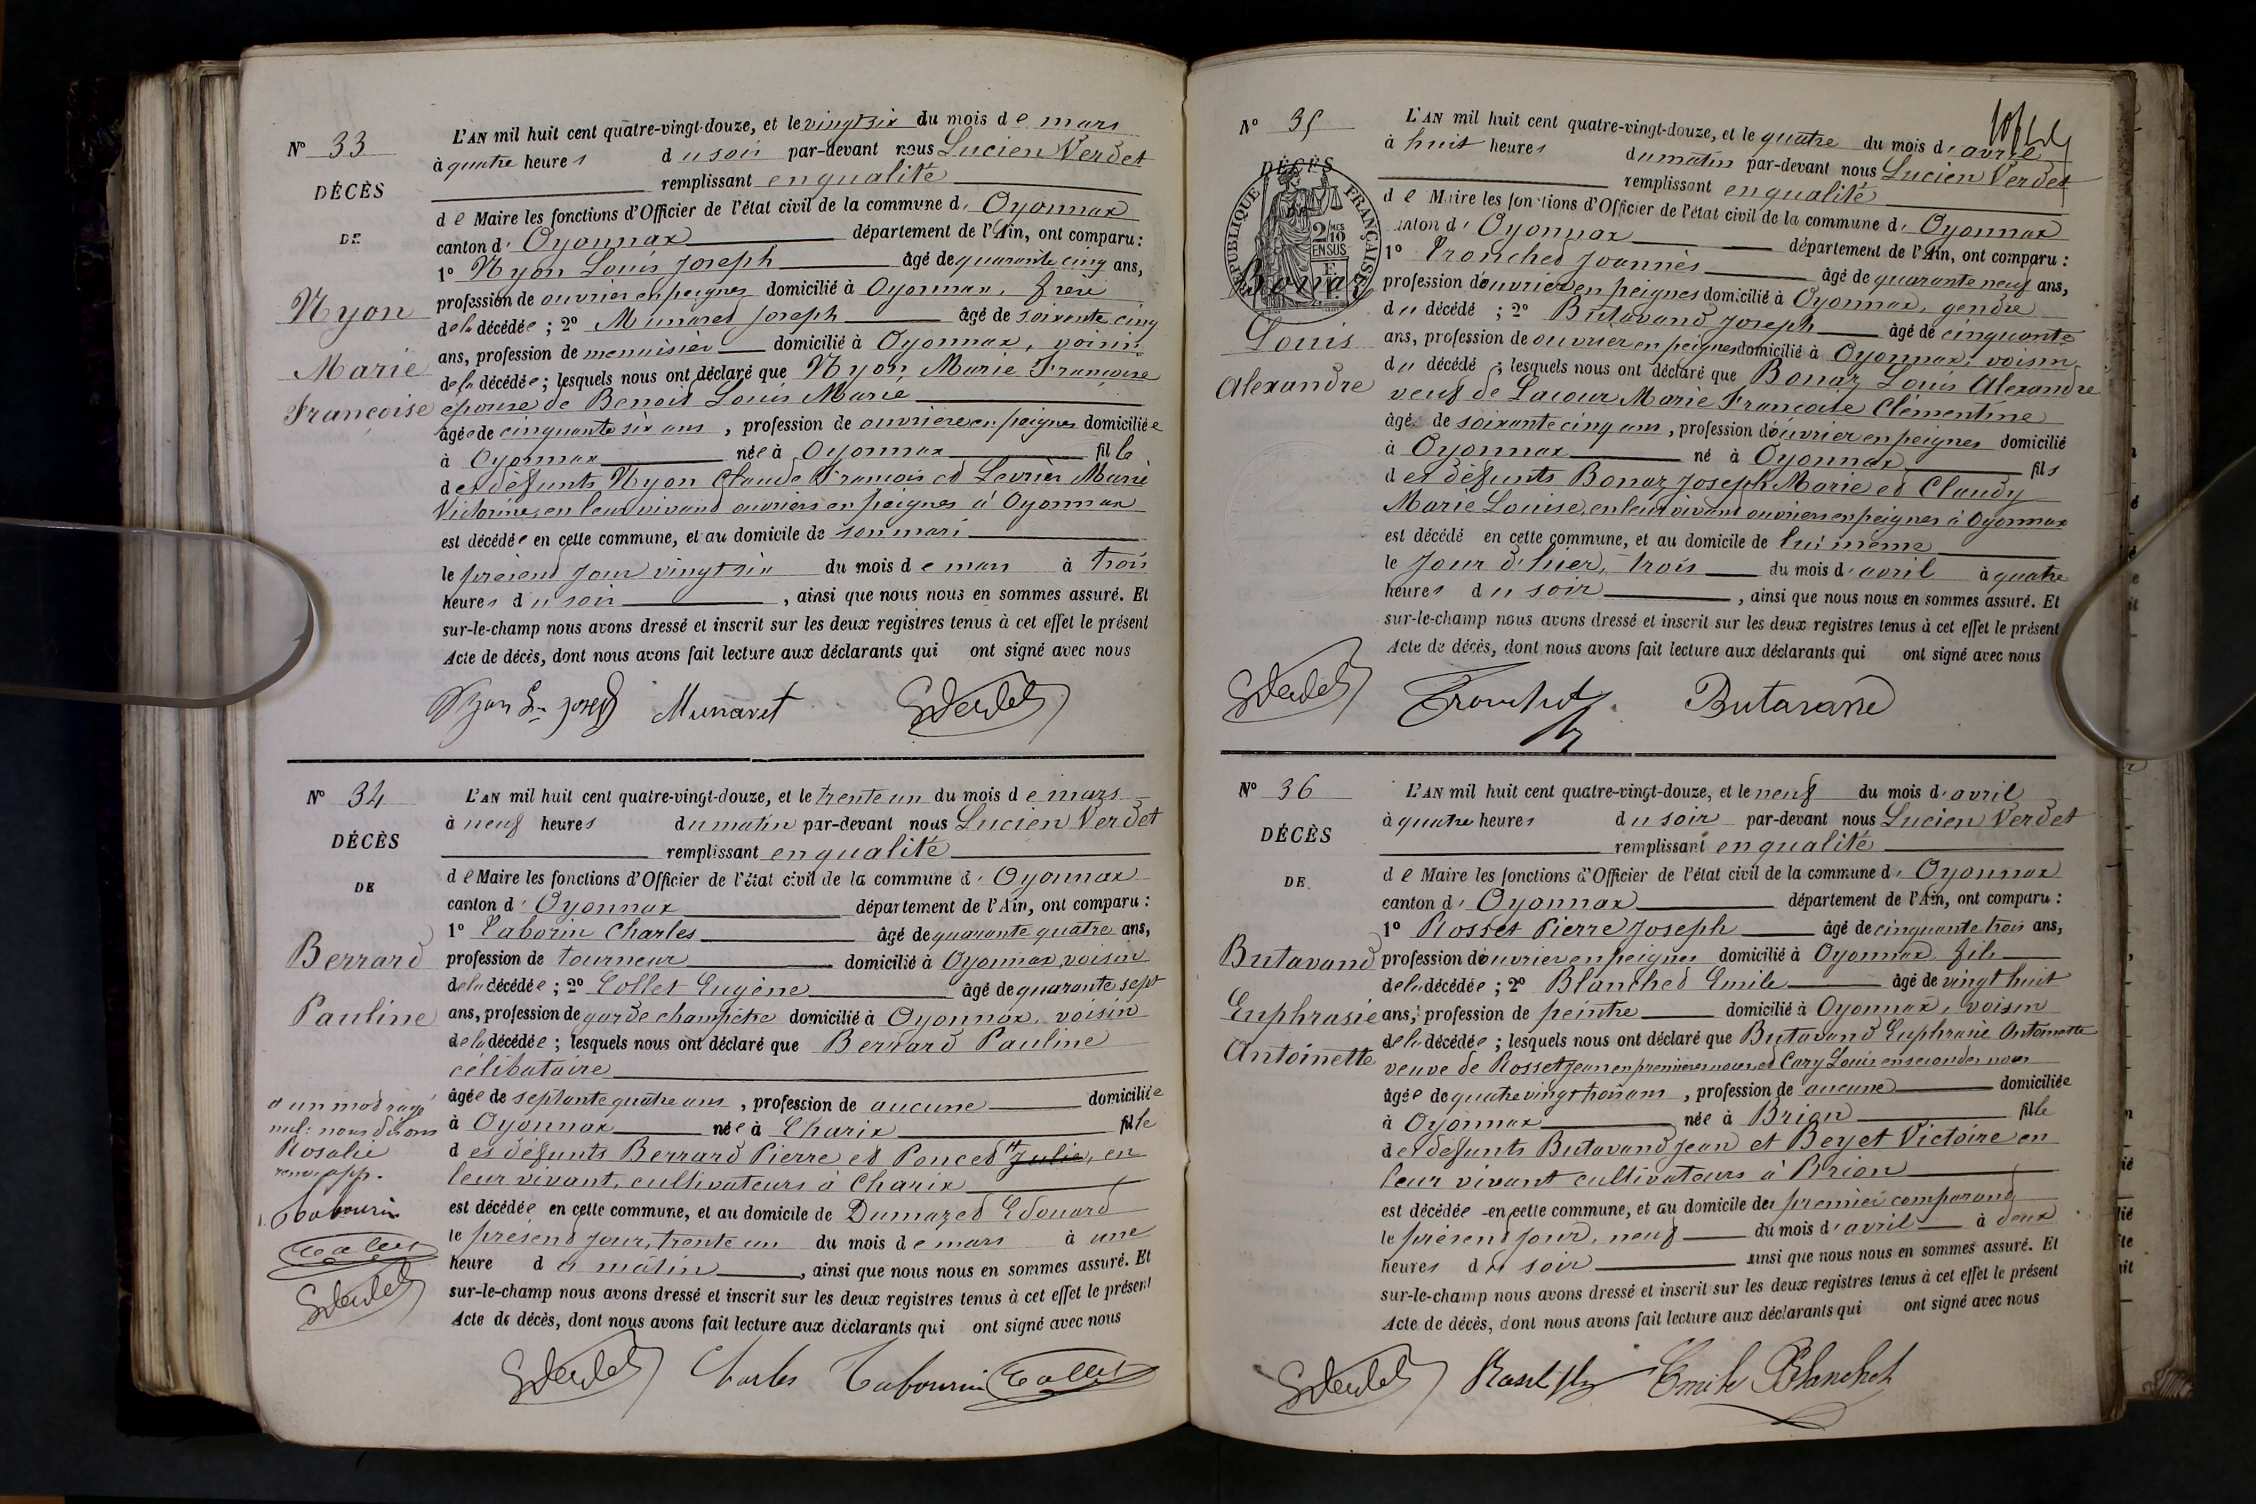 N° 33
DÉCÈS
DE
Nyon
Marie
Françoise
L'AN mil huit cent quatre-vingt-douze, et le vingt six du mois de mars
à quatre heures du soir par-devant nous Lucien Verdet
remplissant en qualité
de Maire les fonctions d'Officier de l'état civil de la commune d' Oyonnax
canton d' Oyonnax département de l'Ain, ont comparu :
1° Nyon Louis Joseph âgé de quarante cinq ans,
profession de ouvrier en peignes domicilié à Oyonnax, frère
de la décédée ; 2° Munaret Joseph âgé de soixante cinq
ans, profession de menuisier domicilié à Oyonnax, voisin
de la décédée ; lesquels nous ont déclaré que Nyon, Marie Françoise
épouse de Benoit Louis Marie
âgée de cinquante six ans, profession de ouvrière en peignes domiciliée
à Oyonnax née à Oyonnax fille
des défunts Nyon Claude François et Levrier Marie
Victorine, en leur vivant ouvriers en peignes à Oyonnax
est décédée en cette commune, et au domicile de son mari
le présent jour vingt six du mois de mars à trois
heures du soir, ainsi que nous nous en sommes assuré. Et
sur-le-champ nous avons dressé et inscrit sur les deux registres tenus à cet effet le présent
Acte de décès, dont nous avons fait lecture aux déclarants qui ont signé avec nous
Nyon Ls joseph Munaret
N° 34
DÉCÈS
DE
Berrard
Pauline
L'AN mil huit cent quatre-vingt-douze, et le trente un du mois de mars
à neuf heures du matin par-devant nous Lucien Verdet
remplissant en qualité
de Maire les fonctions d'Officier de l'état civil de la commune d' Oyonnax
canton d' Oyonnax département de l'Ain, ont comparu :
1° Taborin Charles âgé de quarante quatre ans,
profession de tourneur domicilié à Oyonnax, voisin
de la décédée ; 2° Collet Eugène âgé de quarante sept
ans, profession de garde champêtre domicilié à Oyonnax, voisin
de la décédée ; lesquels nous ont déclaré que Berrard Pauline
célibataire
âgée de septante quatre ans, profession de aucune domiciliée
à Oyonnax née à Charix fille
des défunts Berrard Pierre et Poncet Julie, en
leur vivant, cultivateurs à Charix
est décédée en cette commune, et au domicile de Dumazet Edouard
le présent jour, trente un du mois de mars à une
heure du matin, ainsi que nous nous en sommes assuré. Et
sur-le-champ nous avons dressé et inscrit sur les deux registres tenus à cet effet le présent
Acte de décès, dont nous avons fait lecture aux déclarants qui ont signé avec nous
un mot rayé
nul : nous disons
Rosalie
Tabourin
Collet
Charles Tabourin Collet
N° 35
DÉCÈS
RÉPUBLIQUE FRANÇAISE
2/10
EN SUS
Bonaz
Louis
Alexandre
L'AN mil huit cent quatre-vingt-douze, et le quatre du mois d'avril
à huit heures du matin par-devant nous Lucien Verdet
remplissant en qualité
de Maire les fonctions d'Officier de l'état civil de la commune d' Oyonnax
canton d' Oyonnax département de l'Ain, ont comparu :
1° Tronchet Joannès âgé de quarante neuf ans,
profession d'ouvrier en peignes domicilié à Oyonnax, gendre
du décédé ; 2° Butavand Joseph âgé de cinquante
ans, profession de ouvrier en peignes domicilié à Oyonnax, voisin
du décédé ; lesquels nous ont déclaré que Bonaz Louis Alexandre
veuf de Lacour Marie Françoise Clémentine
âgé de soixante cinq ans, profession d'ouvrier en peignes domicilié
à Oyonnax né à Oyonnax fils
des défunts Bonaz Joseph Marie et Claudy
Marie Louise, en leur vivant ouvriers en peignes à Oyonnax
est décédé en cette commune, et au domicile de lui même
le jour d'hier, trois du mois d'avril à quatre
heures du soir, ainsi que nous nous en sommes assuré. Et
sur-le-champ nous avons dressé et inscrit sur les deux registres tenus à cet effet le présent
Acte de décès, dont nous avons fait lecture aux déclarants qui ont signé avec nous
Tronchet Butavand
N° 36
DÉCÈS
DE
Butavand
Euphrasie
Antoinette
L'AN mil huit cent quatre-vingt-douze, et le neuf du mois d'avril
à quatre heures du soir par-devant nous Lucien Verdet
remplissant en qualité
de Maire les fonctions d'Officier de l'état civil de la commune d' Oyonnax
canton d' Oyonnax département de l'Ain, ont comparu :
1° Rosset Pierre Joseph âgé de cinquante trois ans,
profession d'ouvrier en peignes domicilié à Oyonnax, fils
de la décédée ; 2° Blanchet Emile âgé de vingt huit
ans, profession de peintre domicilié à Oyonnax, voisin
de la décédée ; lesquels nous ont déclaré que Butavand Euphrasie Antoinette
veuve de Rosset Jean en premières noces, et Cary Louis en secondes noces
âgée de quatre vingt trois ans, profession de aucune domiciliée
à Oyonnax née à Brion fille
des défunts Butavand Jean et Beyet Victoire en
leur vivant cultivateurs à Brion
est décédée en cette commune, et au domicile de premier comparant
le présent jour, neuf du mois d'avril à deux
heures du soir ainsi que nous nous en sommes assuré. Et
sur-le-champ nous avons dressé et inscrit sur les deux registres tenus à cet effet le présent
Acte de décès, dont nous avons fait lecture aux déclarants qui ont signé avec nous
Emile Blanchet